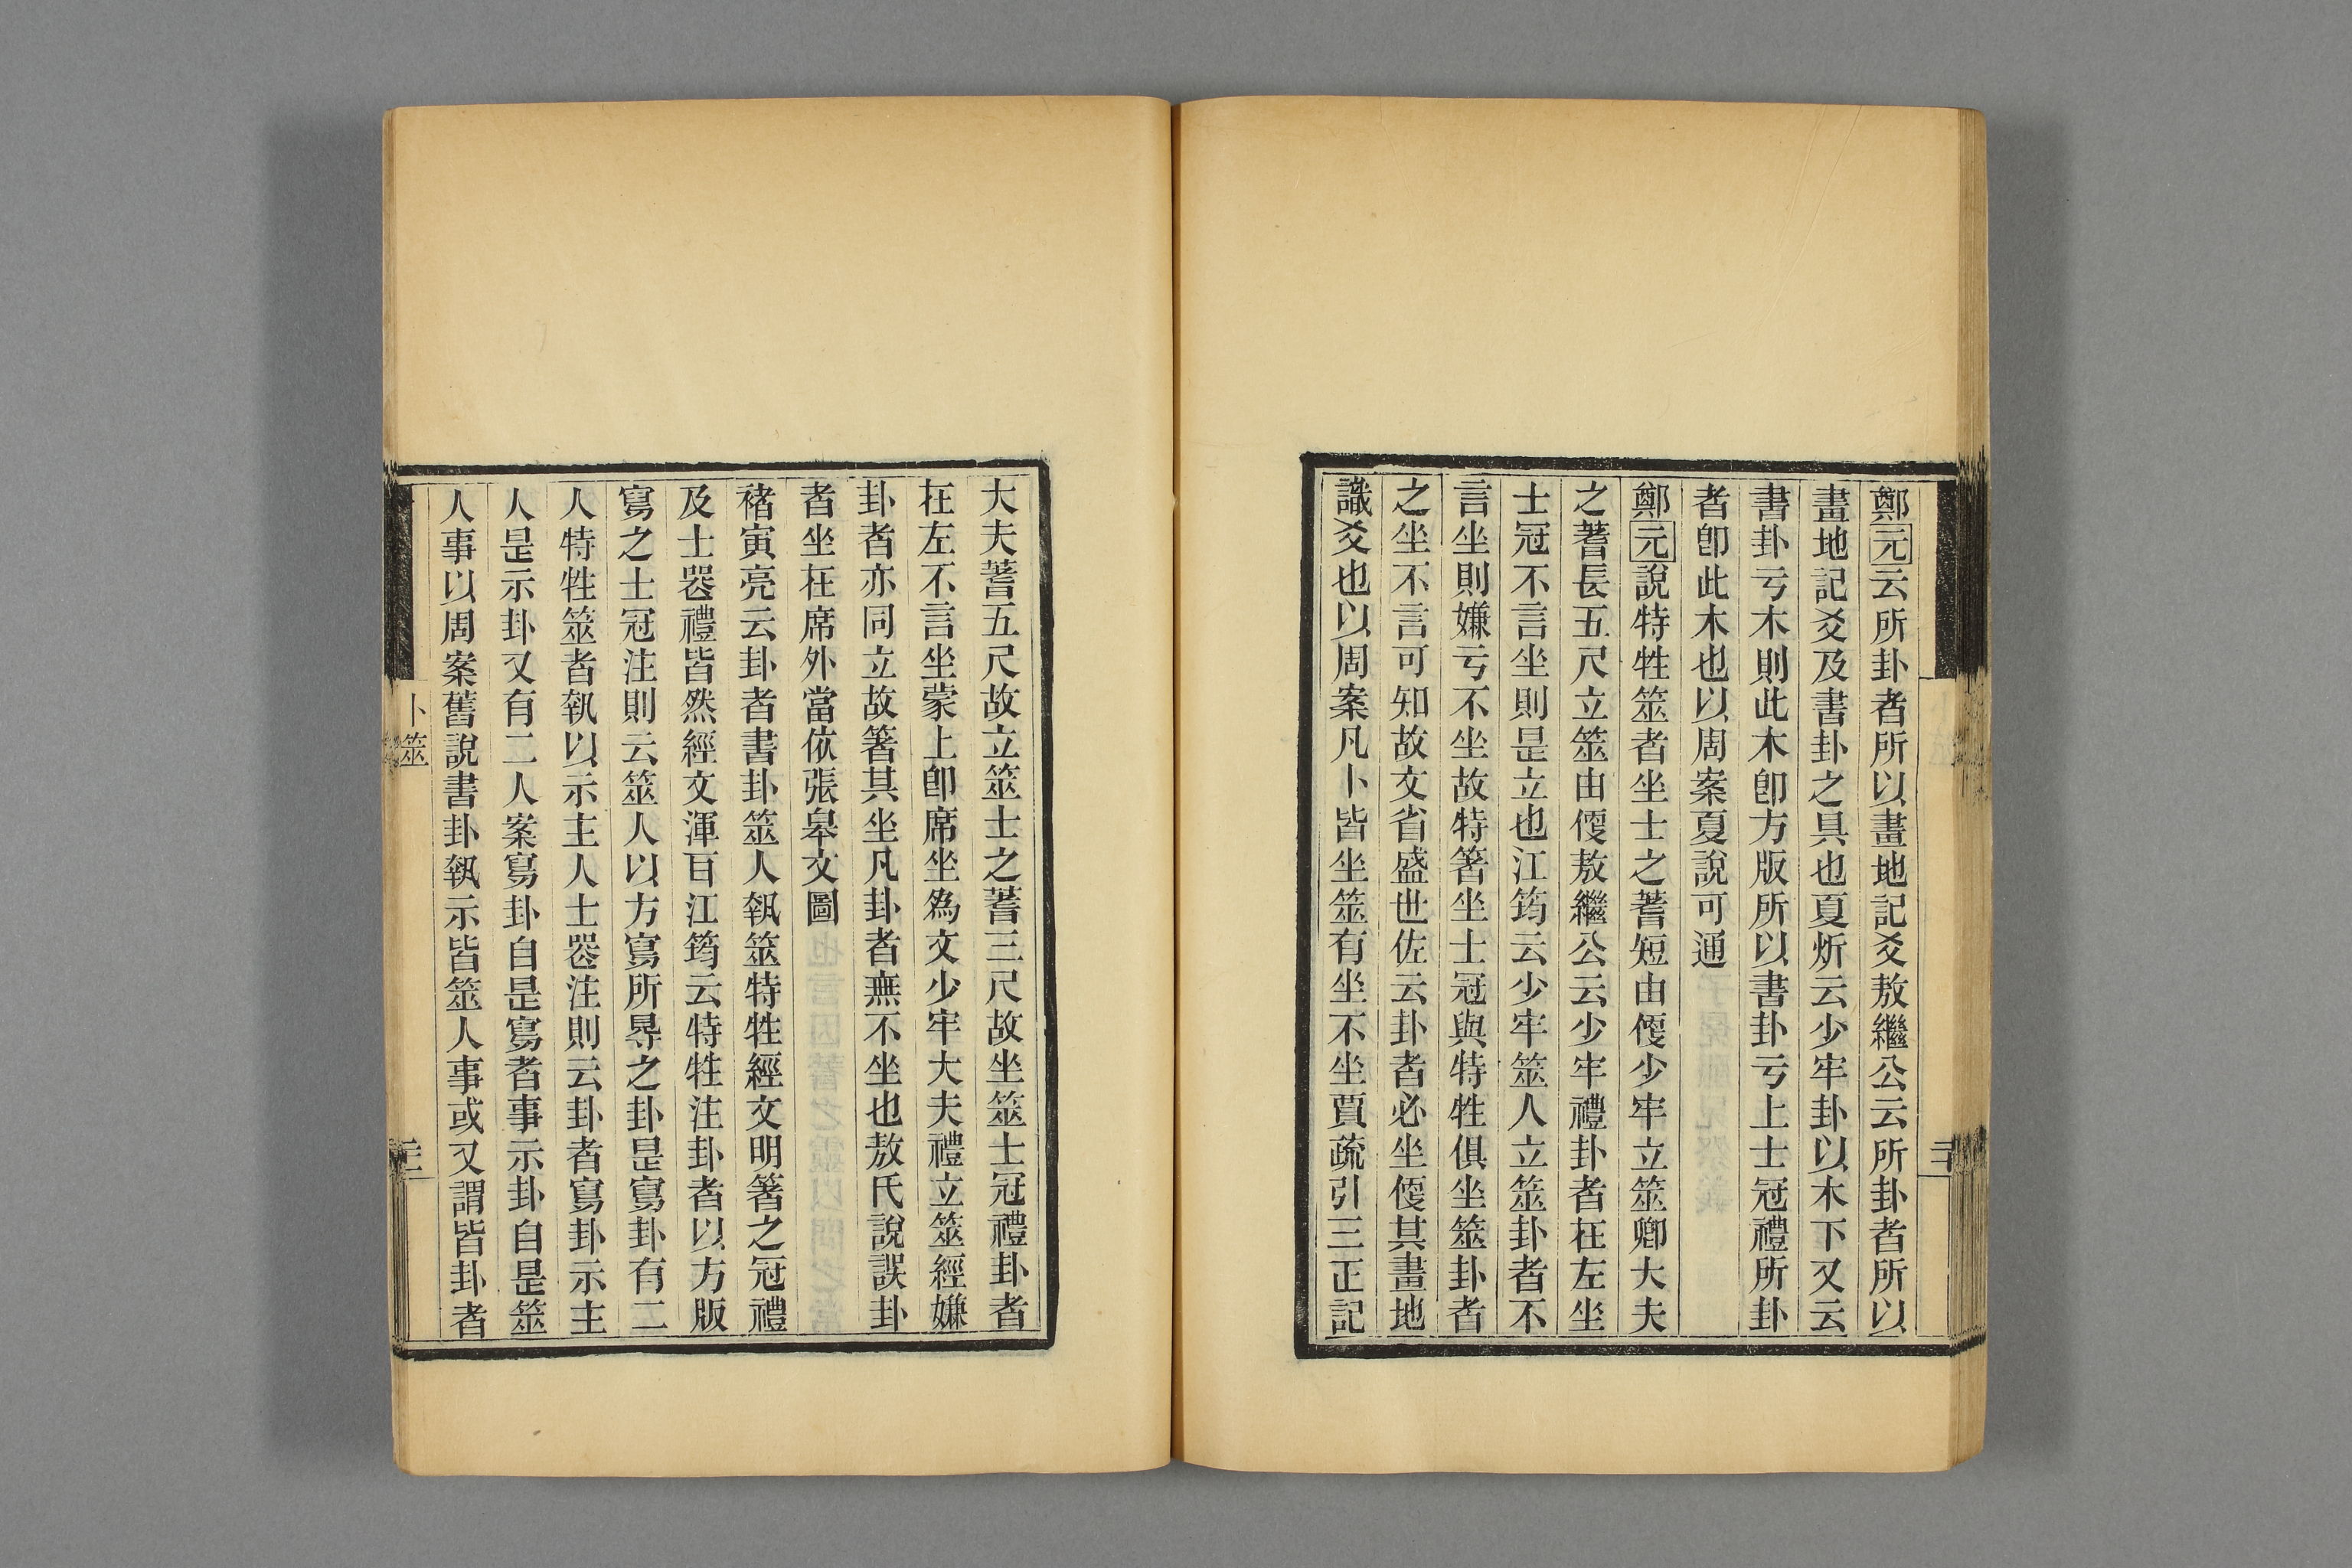 鄭元云所卦者所以畫地記爻敖繼公云所卦者所以
畫地記爻及書卦之具也夏炘云少牢卦以木下又云
書卦亏木則此木卽方版所以書卦亏上士冠禮所卦
者卽此木也以周案夏說可通
鄭元說特牲筮者坐士之蓍短由偠少牢立筮卿大夫
之蓍長五尺立筮由偠敖繼公云少牢禮卦者在左坐
士冠不言坐則是立也江筠云少牢筮人立筮卦者不
言坐則嫌亏不坐故特箸坐士冠與特牲俱坐筮卦者
之坐不言可知故文省盛世佐云卦者必坐偠其畫地
識爻也以周案凡卜皆坐筮有坐不坐賈疏引三正記
大夫蓍五尺故立筮士之蓍三尺故坐筮士冠禮卦者
在左不言坐蒙上卽席坐爲文少牢大夫禮立筮經嫌
卦者亦同立故箸其坐凡卦者無不坐也敖氏說誤卦
者坐在席外當依張皋文圖
褚寅亮云卦者書卦筮人執筮特牲經文明箸之冠禮
及士器禮皆然經文渾耳江筠云特牲注卦者以方版
寫之士冠注則云筮人以方寫所㝵之卦是寫卦有二
人特牲筮者執以示主人士器注則云卦者寫卦示主
人是示卦又有二人案寫卦自是寫者事示卦自是筮
人事以周案舊說書卦執示皆筮人事或又謂皆卦者
卜筮